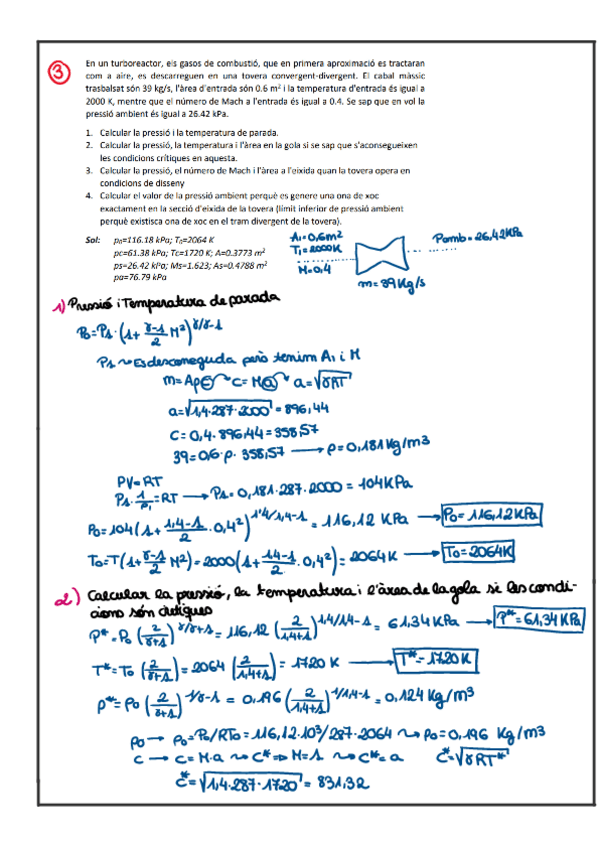 3
En un turboreactor, els gasos de combustió, que en primera aproximació es tractaran
com a aire, es descarreguen en una tovera convergent-divergent. El cabal màssic
trasbalsat són 39 kg/s, l'àrea d'entrada són 0.6 m² i la temperatura d'entrada és igual a
2000 K, mentre que el número de Mach a l'entrada és igual a 0.4. Se sap que en vol la
pressió ambient és igual a 26.42 kPa.
1. Calcular la pressió i la temperatura de parada.
2. Calcular la pressió, la temperatura i l'àrea en la gola si se sap que s'aconsegueixen
les condicions crítiques en aquesta.
3. Calcular la pressió, el número de Mach i l'àrea a l'eixida quan la tovera opera en
condicions de disseny
4. Calcular el valor de la pressió ambient perquè es genere una ona de xoc
exactament en la secció d'eixida de la tovera (límit inferior de pressió ambient
perquè existisca ona de xoc en el tram divergent de la tovera).
Sol: p₀=116.18 kPa; T₀=2064 K
pc=61.38 kPa; Tc=1720 K; A=0.3773 m²
ps=26.42 kPa; Ms=1.623; As=0.4788 m²
pa=76.79 kPa
A₁=0,6m²
T₁=2000K
M=0,4
Pamb=26,42KPa
ṁ=39Kg/s
1) Pressió i Temperatura de parada
P₀=P₁·(1+ γ-1/2 M²)^γ/γ-1
P₁ ~> Es desconeguda però tenim A₁ i M
ṁ=Aρc c=Ma a=√γRT
a=√1,4·287·2000 = 896,44
c=0,4·896,44=358,57
39=0,6·ρ·358,57 → ρ=0,181Kg/m3
PV=RT
P₁·1/ρ₁=RT → P₁=0,181·287·2000 = 104KPa
P₀=104(1+ 1,4-1/2 ·0,4²)^1,4/1,4-1 = 116,12 KPa → P₀=116,12KPa
T₀=T(1+ γ-1/2 M²)=2000(1+ 1,4-1/2 ·0,4²)=2064K → T₀=2064K
2) Calcular la pressió, la temperatura i l'àrea de la gola si les condi-
cions són crítiques
P*=P₀(2/γ+1)^γ/γ+1 = 116,12 (2/1,4+1)^1,4/1,4-1 = 61,34KPa → P*=61,34KPa
T*=T₀(2/γ+1)=2064(2/1,4+1)=1720K → T*=1720K
ρ*=ρ₀(2/γ+1)^1/γ-1 = 0,196(2/1,4+1)^1/1,4-1 = 0,124 Kg/m3
ρ₀ → ρ₀=P₀/RT₀=116,12·10³/287·2064 ~> ρ₀=0,196 Kg/m3
c → c=M·a ~> c* => M=1 ~> c*=a c*=√γRT*
c*=√1,4·287·1720 = 831,32